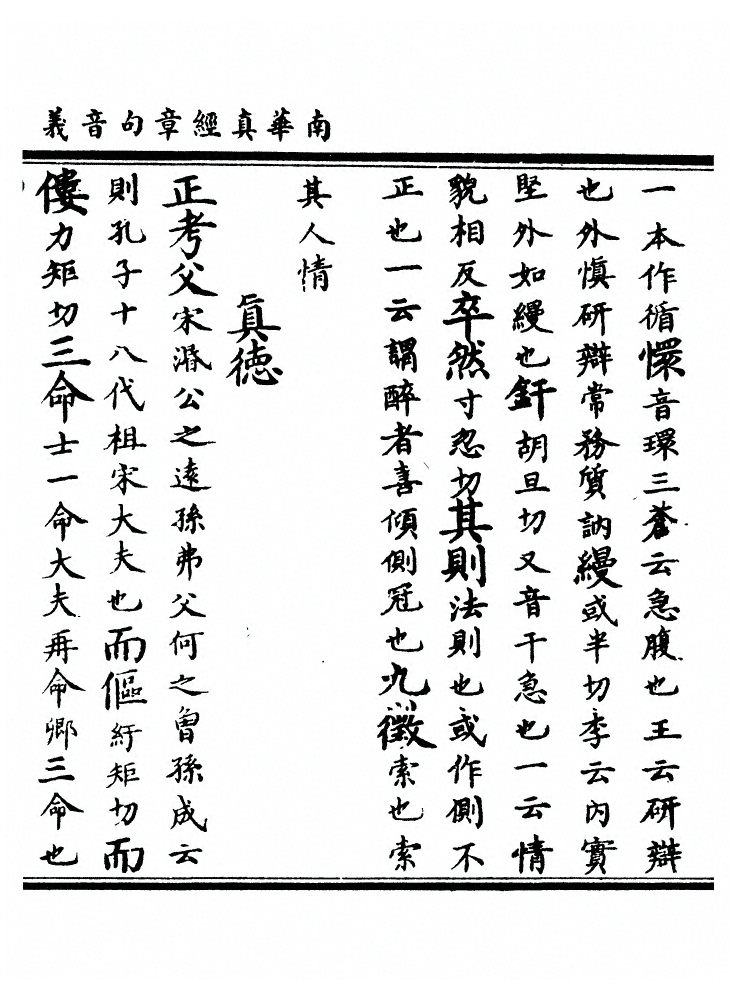 南華真經章句音義
一本作循懁音環三蒼云急腹也王云研辯
也外慎研辯常務質訥縵或半切李云内實
堅外如縵也釬胡旦切又音干急也一云情
貌相反卒然寸忍切其則法則也或作側不
正也一云謂醉者喜傾側冠也九徵索也索
其人情
真德
正考父宋湣公之遠孫弗父何之曾孫成云
則孔子十八代祖宋大夫也而傴紆矩切而
僂力矩切三命士一命大夫再命卿三命也